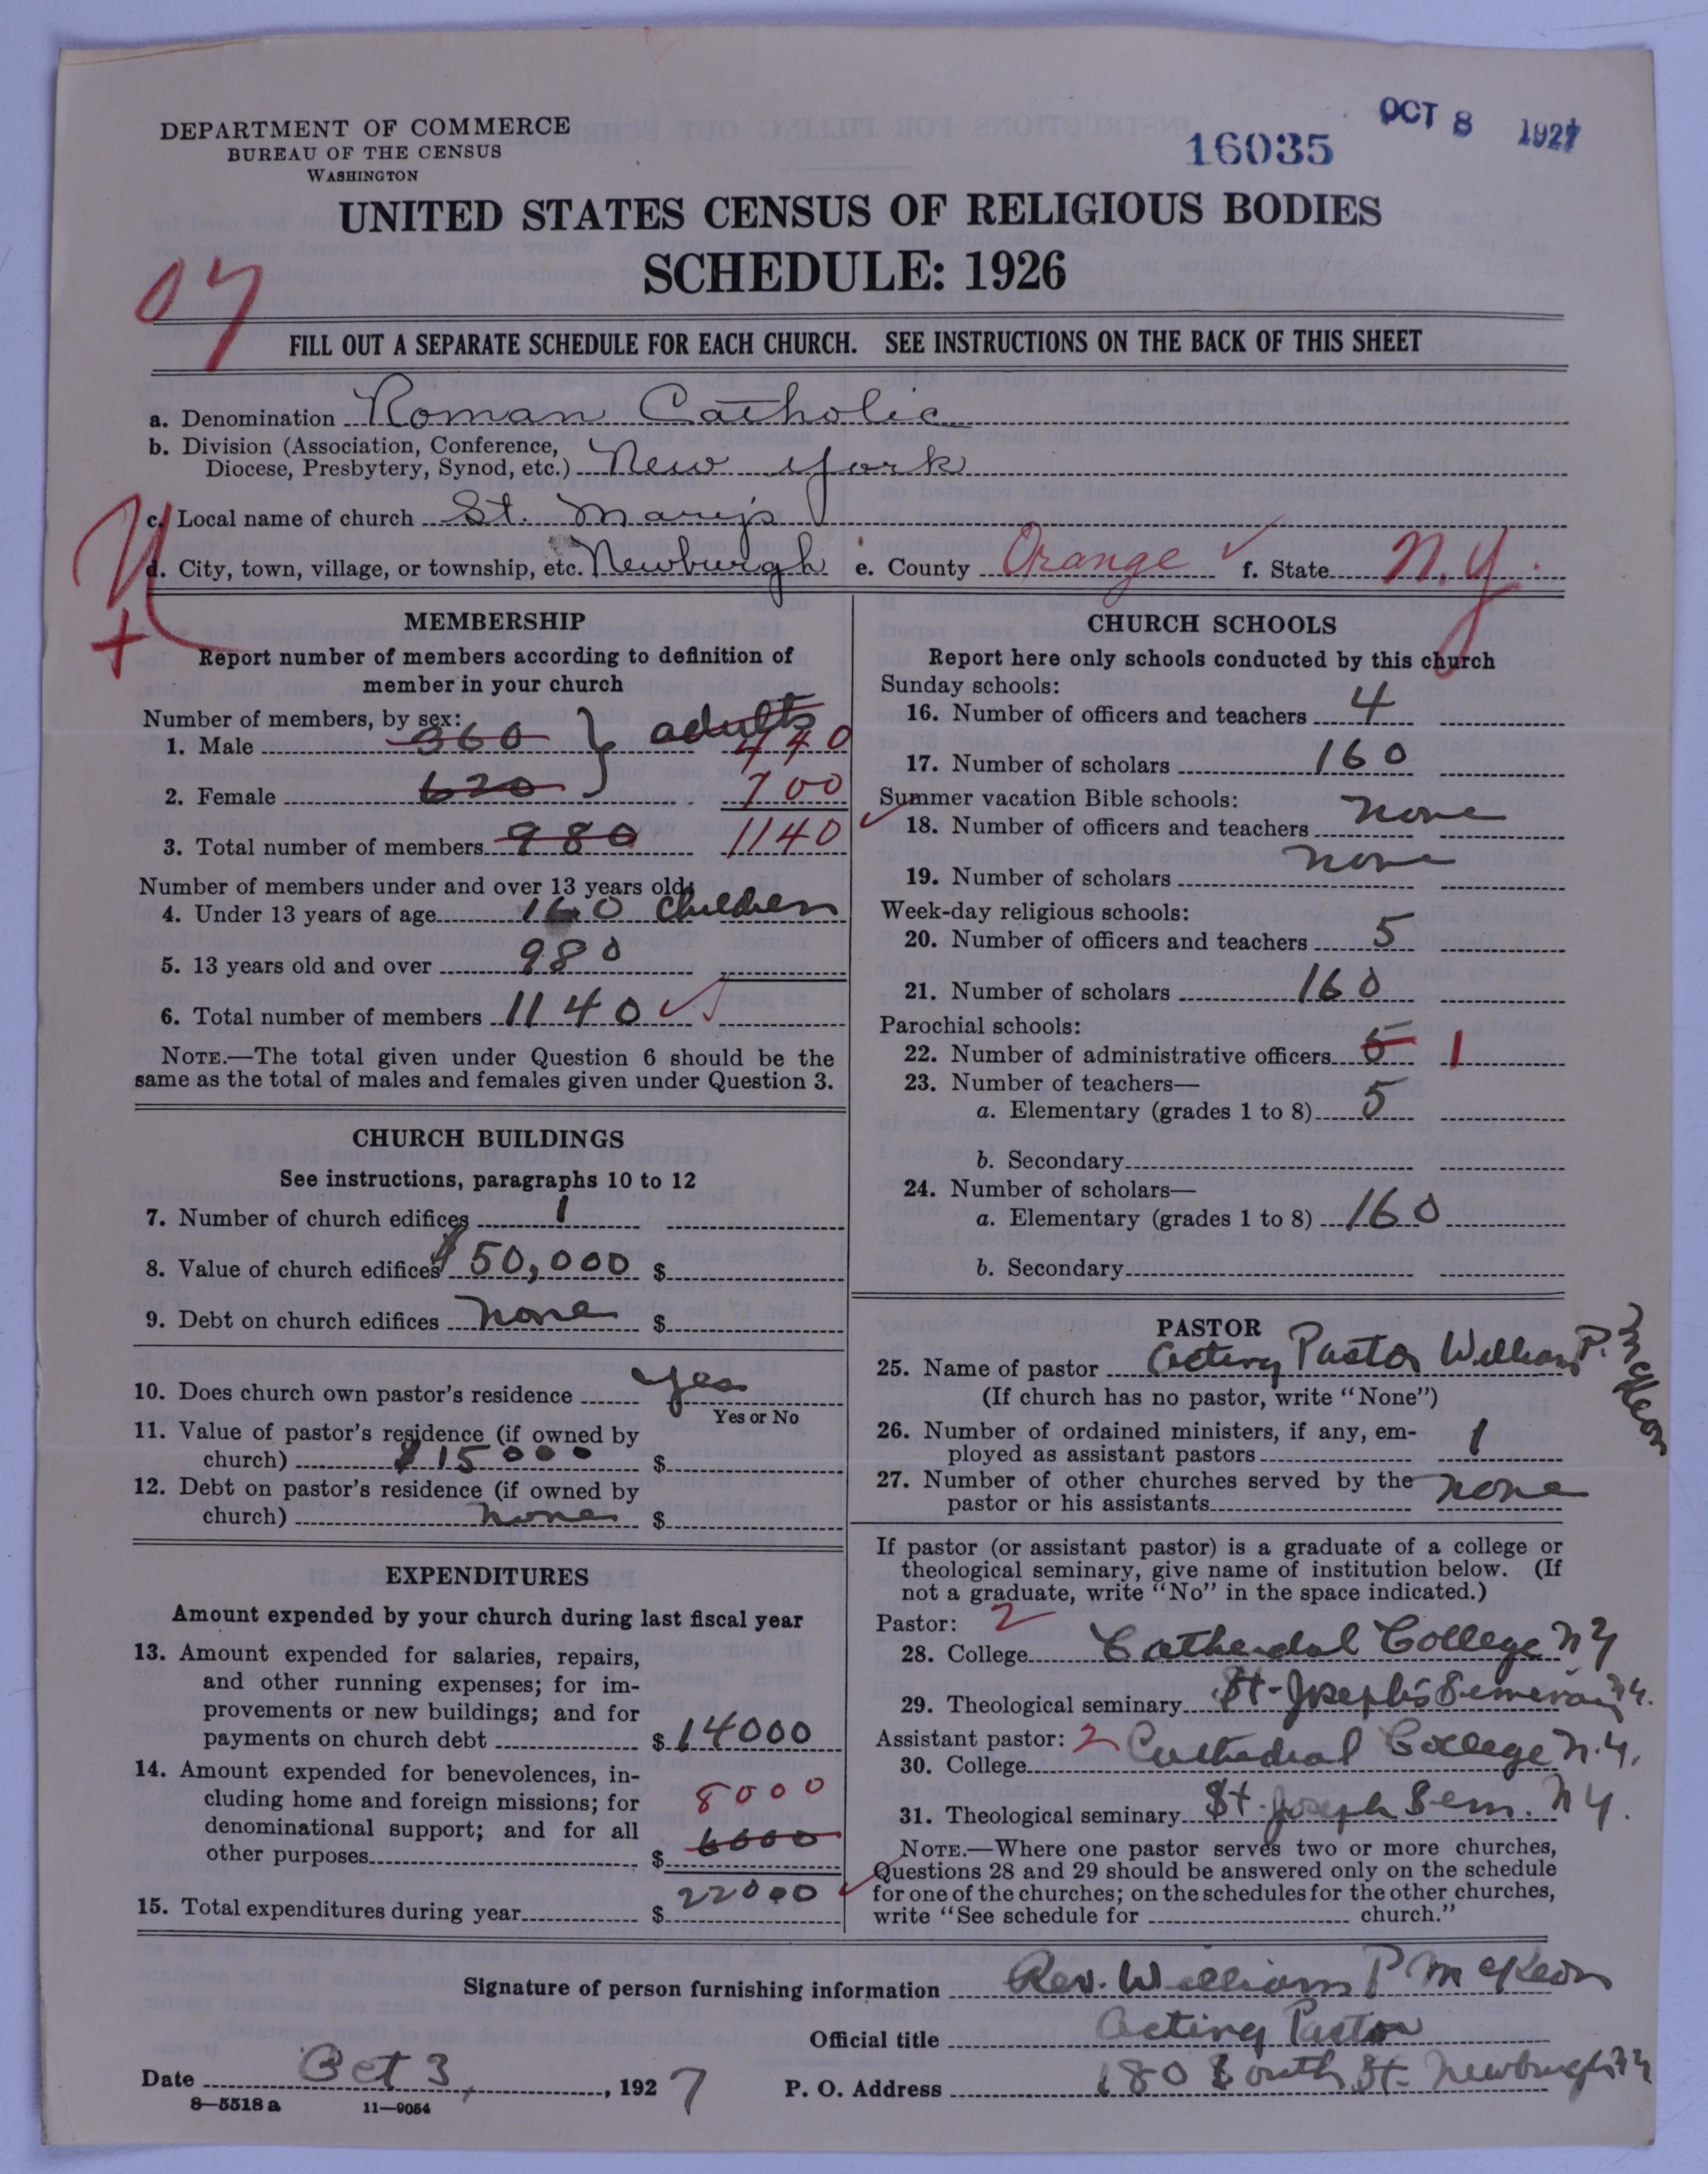 DEPARTMENT OF COMMERCE
BUREAU OF THE CENSUS
WASHINGTON
16035
OCT 8 1927
UNITED STATES CENSUS OF RELIGIOUS BODIES
SCHEDULE: 1926
FILL OUT A SEPARATE SCHEDULE FOR EACH CHURCH. SEE INSTRUCTIONS ON THE BACK OF THIS SHEET
a. Denomination Roman Catholic
b. Division (Association, Conference,
Diocese, Presbytery, Synod, etc.) New York
c. Local name of church St. Mary's
d. City, town, village, or township, etc. Newburgh e. County Orange f. State N.Y.
MEMBERSHIP
Report number of members according to definition of
member in your church
Number of members, by sex: adults
1. Male 360 440
2. Female 620 700
3. Total number of members 980 1140
Number of members under and over 13 years old:
4. Under 13 years of age 160 children
5. 13 years old and over 980
6. Total number of members 1140
NOTE.—The total given under Question 6 should be the
same as the total of males and females given under Question 3.
CHURCH BUILDINGS
See instructions, paragraphs 10 to 12
7. Number of church edifices 1
8. Value of church edifices $50,000 $
9. Debt on church edifices none $
10. Does church own pastor's residence yes
Yes or No
11. Value of pastor's residence (if owned by
church) $15000 $
12. Debt on pastor's residence (if owned by
church) none $
EXPENDITURES
Amount expended by your church during last fiscal year
13. Amount expended for salaries, repairs,
and other running expenses; for im-
provements or new buildings; and for
payments on church debt $14000
14. Amount expended for benevolences, in-
cluding home and foreign missions; for 8000
denominational support; and for all
other purposes $ 6000
15. Total expenditures during year $ 22000
CHURCH SCHOOLS
Report here only schools conducted by this church
Sunday schools:
16. Number of officers and teachers 4
17. Number of scholars 160
Summer vacation Bible schools:
18. Number of officers and teachers none
19. Number of scholars none
Week-day religious schools:
20. Number of officers and teachers 5
21. Number of scholars 160
Parochial schools:
22. Number of administrative officers 5 1
23. Number of teachers—
a. Elementary (grades 1 to 8) 5
b. Secondary
24. Number of scholars—
a. Elementary (grades 1 to 8) 160
b. Secondary
PASTOR
25. Name of pastor Acting Pastor William P. McKeon
(If church has no pastor, write "None")
26. Number of ordained ministers, if any, em-
ployed as assistant pastors 1
27. Number of other churches served by the
pastor or his assistants none
If pastor (or assistant pastor) is a graduate of a college or
theological seminary, give name of institution below. (If
not a graduate, write "No" in the space indicated.)
Pastor: 2
28. College Cathedral College N Y
29. Theological seminary St-Joseph's Seminary N.Y.
Assistant pastor: 2
30. College Cathedral College N.Y.
31. Theological seminary St. Joseph Sem. N Y.
NOTE.—Where one pastor serves two or more churches,
Questions 28 and 29 should be answered only on the schedule
for one of the churches; on the schedules for the other churches,
write "See schedule for church."
Signature of person furnishing information Rev. William P McKeon
Official title Acting Pastor
Date Oct 3, 1927 P. O. Address 180 South St. Newburgh N Y
8—5518a 11—9054